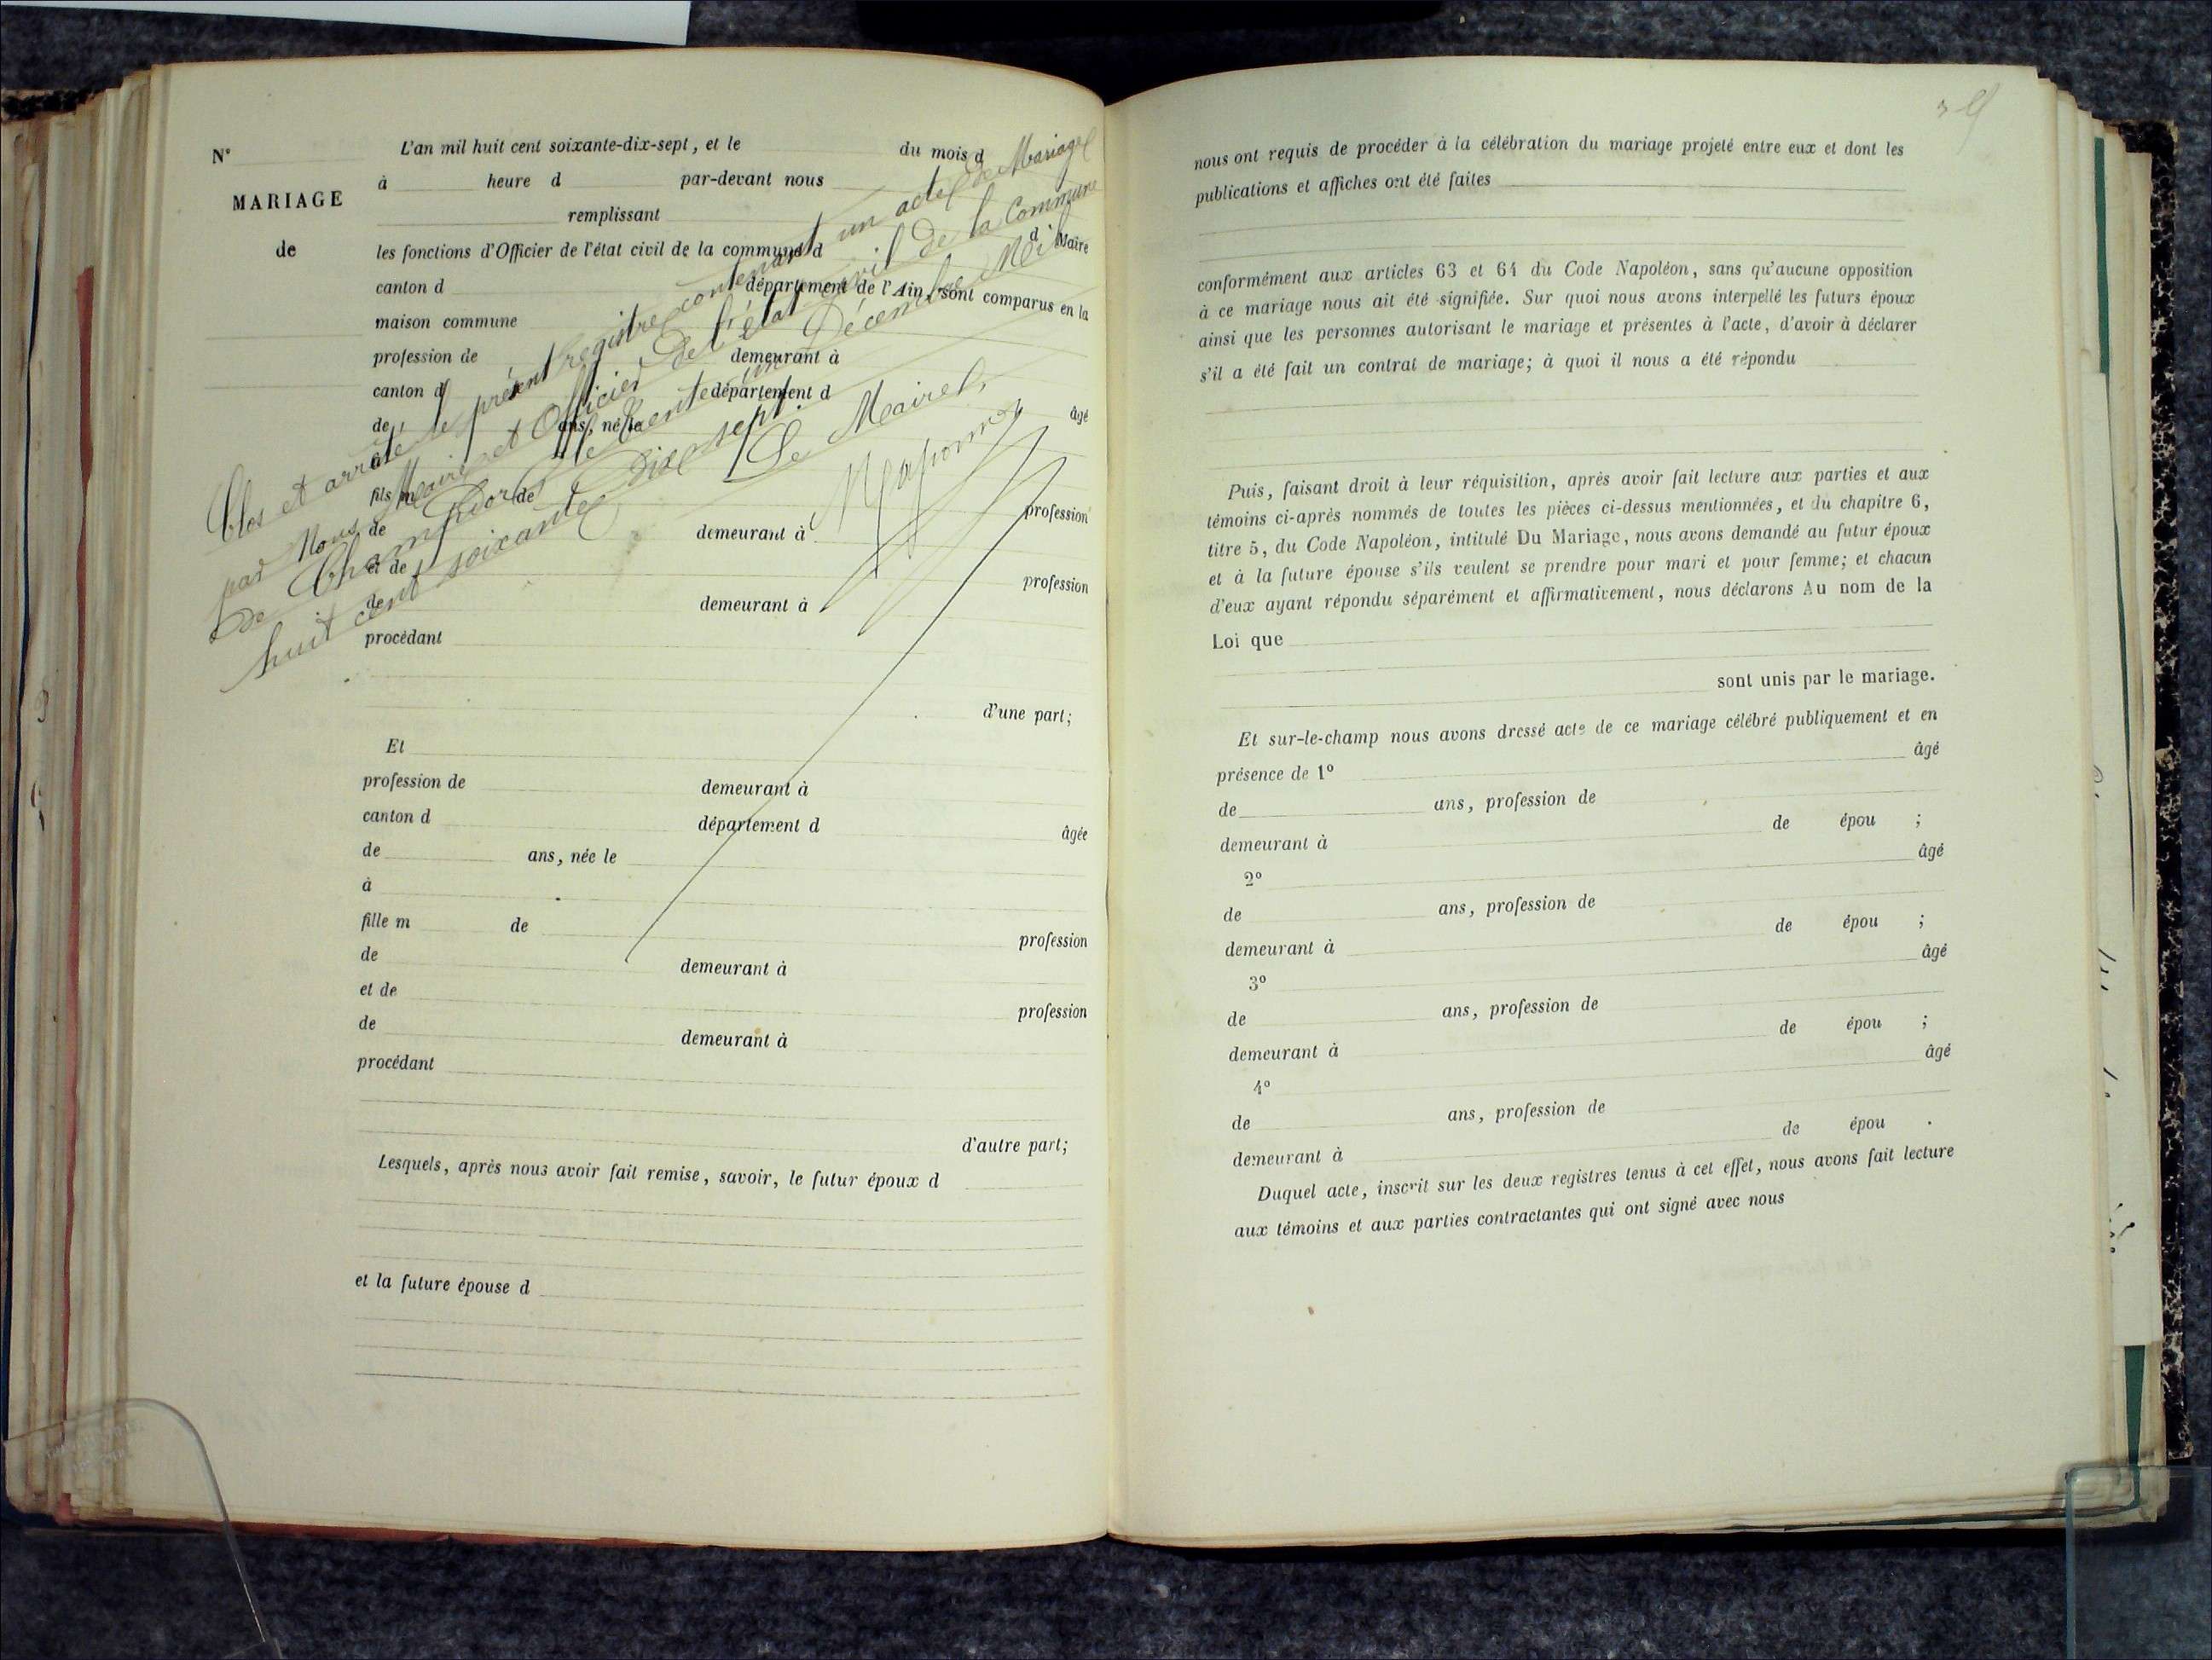 N°
MARIAGE
de
L'an mil huit cent soixante-dix-sept, et le du mois d
à heure d par-devant nous
remplissant
les fonctions d'Officier de l'état civil de la commune d d Maire
canton d département de l'Ain, sont comparus en la
maison commune
profession de demeurant à
canton d département d
de ans, né le âgé
à
fils m de
de demeurant à profession
et de
de demeurant à profession
procédant
d'une part;
Clos et arrêté le présent registre contenant un acte de Mariage
par Nous Maire et Officier de l'état civil de la Commune
de Champdor le trente un Décembre Mil
huit cent soixante dix sept.
Le Maire,
Et
profession de demeurant à
canton d département d âgée
de ans, née le
à
fille m de profession
de demeurant à
et de profession
de demeurant à
procédant
d'autre part;
Lesquels, après nous avoir fait remise, savoir, le futur époux d
et la future épouse d
nous ont requis de procéder à la célébration du mariage projeté entre eux et dont les
publications et affiches ont été faites
conformément aux articles 63 et 64 du Code Napoléon, sans qu'aucune opposition
à ce mariage nous ait été signifiée. Sur quoi nous avons interpellé les futurs époux
ainsi que les personnes autorisant le mariage et présentes à l'acte, d'avoir à déclarer
s'il a été fait un contrat de mariage; à quoi il nous a été répondu
Puis, faisant droit à leur réquisition, après avoir fait lecture aux parties et aux
témoins ci-après nommés de toutes les pièces ci-dessus mentionnées, et du chapitre 6,
titre 5, du Code Napoléon, intitulé Du Mariage, nous avons demandé au futur époux
et à la future épouse s'ils veulent se prendre pour mari et pour femme; et chacun
d'eux ayant répondu séparément et affirmativement, nous déclarons Au nom de la
Loi que
sont unis par le mariage.
Et sur-le-champ nous avons dressé acte de ce mariage célébré publiquement et en
présence de 1° âgé
de ans, profession de
demeurant à de épou ;
2° âgé
de ans, profession de
demeurant à de épou ;
3° âgé
de ans, profession de
demeurant à de épou ;
4° âgé
de ans, profession de
demeurant à de épou .
Duquel acte, inscrit sur les deux registres tenus à cet effet, nous avons fait lecture
aux témoins et aux parties contractantes qui ont signé avec nous